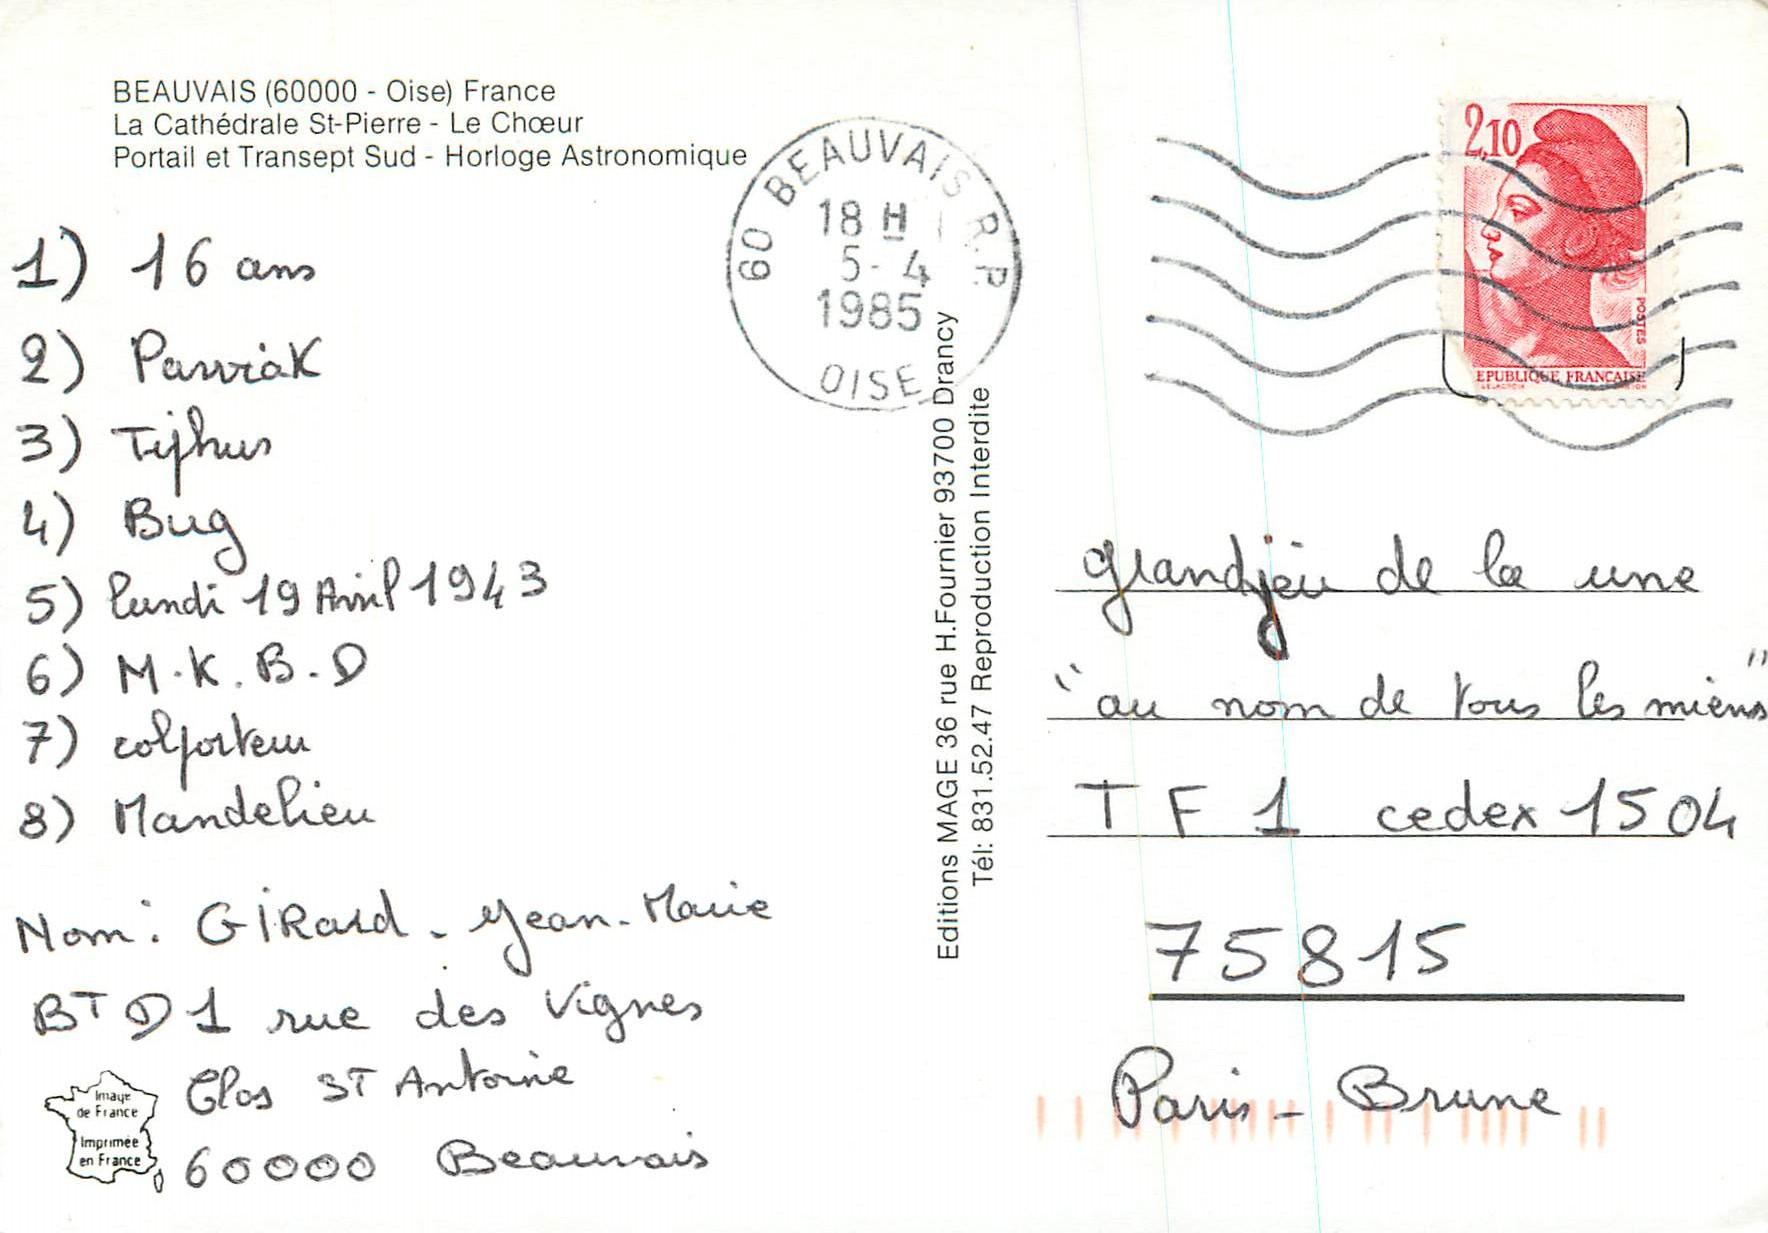 BEAUVAIS (60000 - Oise) France
La Cathédrale St-Pierre - Le Chœur
Portail et Transept Sud - Horloge Astronomique
1) 16 ans
2) Pawiak
3) Tiphus
4) Bug
5) lundi 19 Avril 1943
6) M.K.B.D
7) colporteur
8) Mandelieu
Nom: GIRard - Jean-Marie
BT D1 rue des Vignes
Clos ST Antoine
60000 Beauvais
Image
de France
Imprimée
en France
60 BEAUVAIS R.P.
18 H
5-4
1985
OISE
Editions MAGE 36 rue H.Fournier 93700 Drancy
Tél: 831.52.47 Reproduction Interdite
2,10
POSTES
EPUBLIQUE FRANÇAISE
grandjeu de la une
"au nom de tous les miens"
TF1 cedex 1504
75815
Paris - Brune